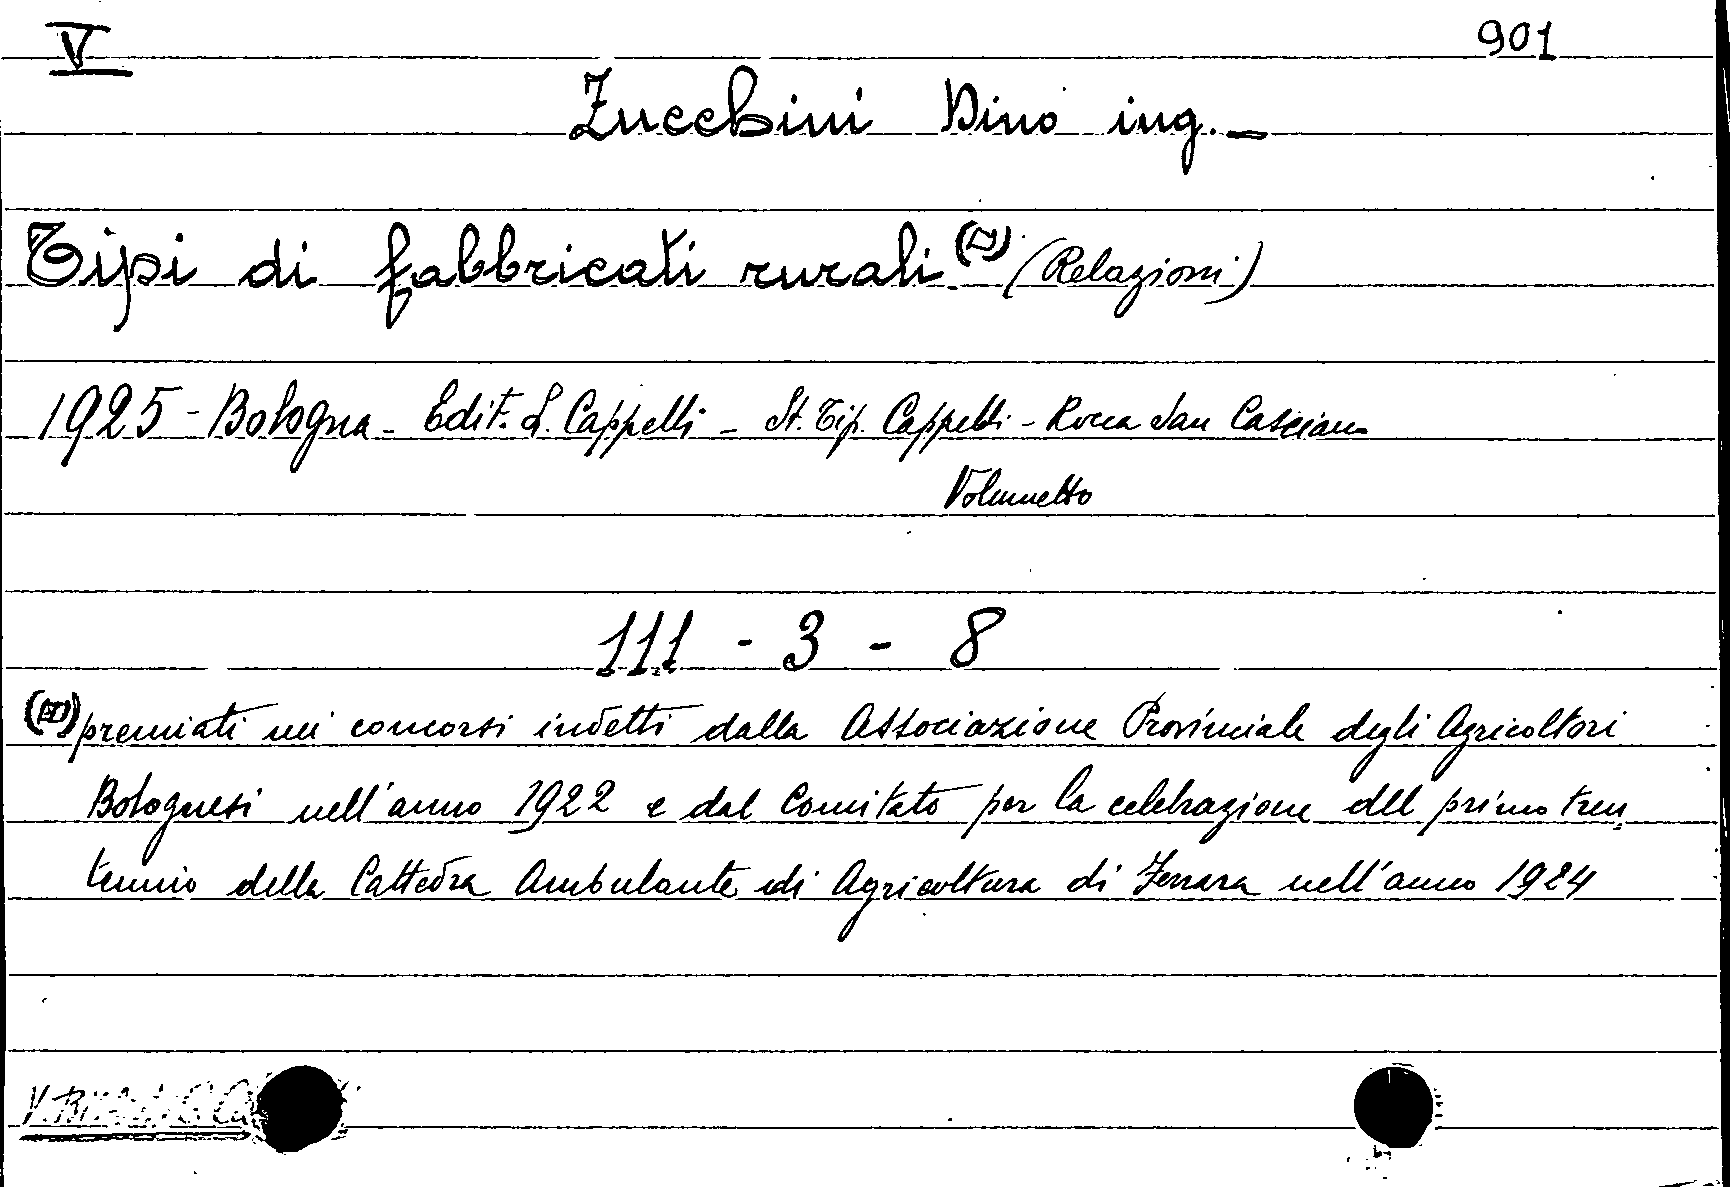 V 901
Zucchini Dino ing. –
Tipi di fabbricati rurali. (□) (Relazioni)
1925 - Bologna - Edit. L. Cappelli - St. Tip. Cappelli - Rocca San Casciano
Volumetto
111 - 3 - 8
(□) premiati nei concorsi indetti dalla Associazione Provinciale degli Agricoltori
Bolognesi nell'anno 1922 e dal Comitato per la celebrazione del primo tren=
tennio della Cattedra Ambulante di Agricoltura di Ferrara nell'anno 1924